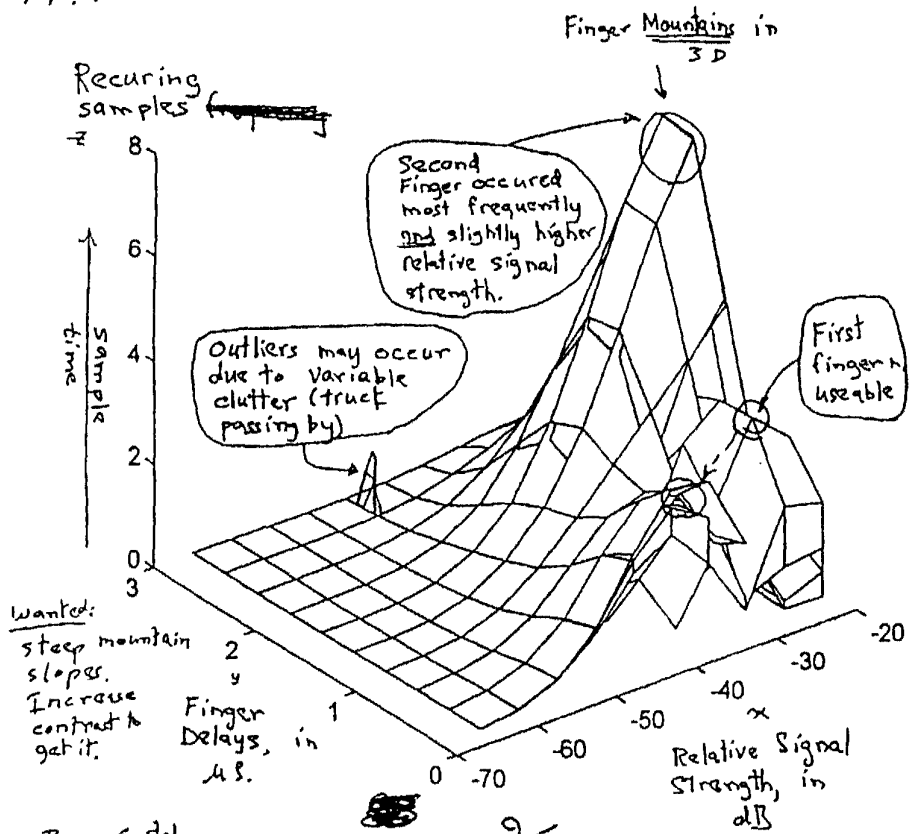 Finger Mountains in
3 D
Recuring
samples
z
8
6
4
2
0
sample
time
Second
Finger occured
most frequently
and slightly higher
relative signal
strength.
First
finger
useable
Outliers may occur
due to variable
clutter (truck
passing by)
Wanted:
steep mountain
slopes.
Increase
contrast to
get it.
3
2
y
1
0
Finger
Delays, in
μs.
-70
-60
-50
-40
-30
-20
x
Relative Signal
Strength, in
dB